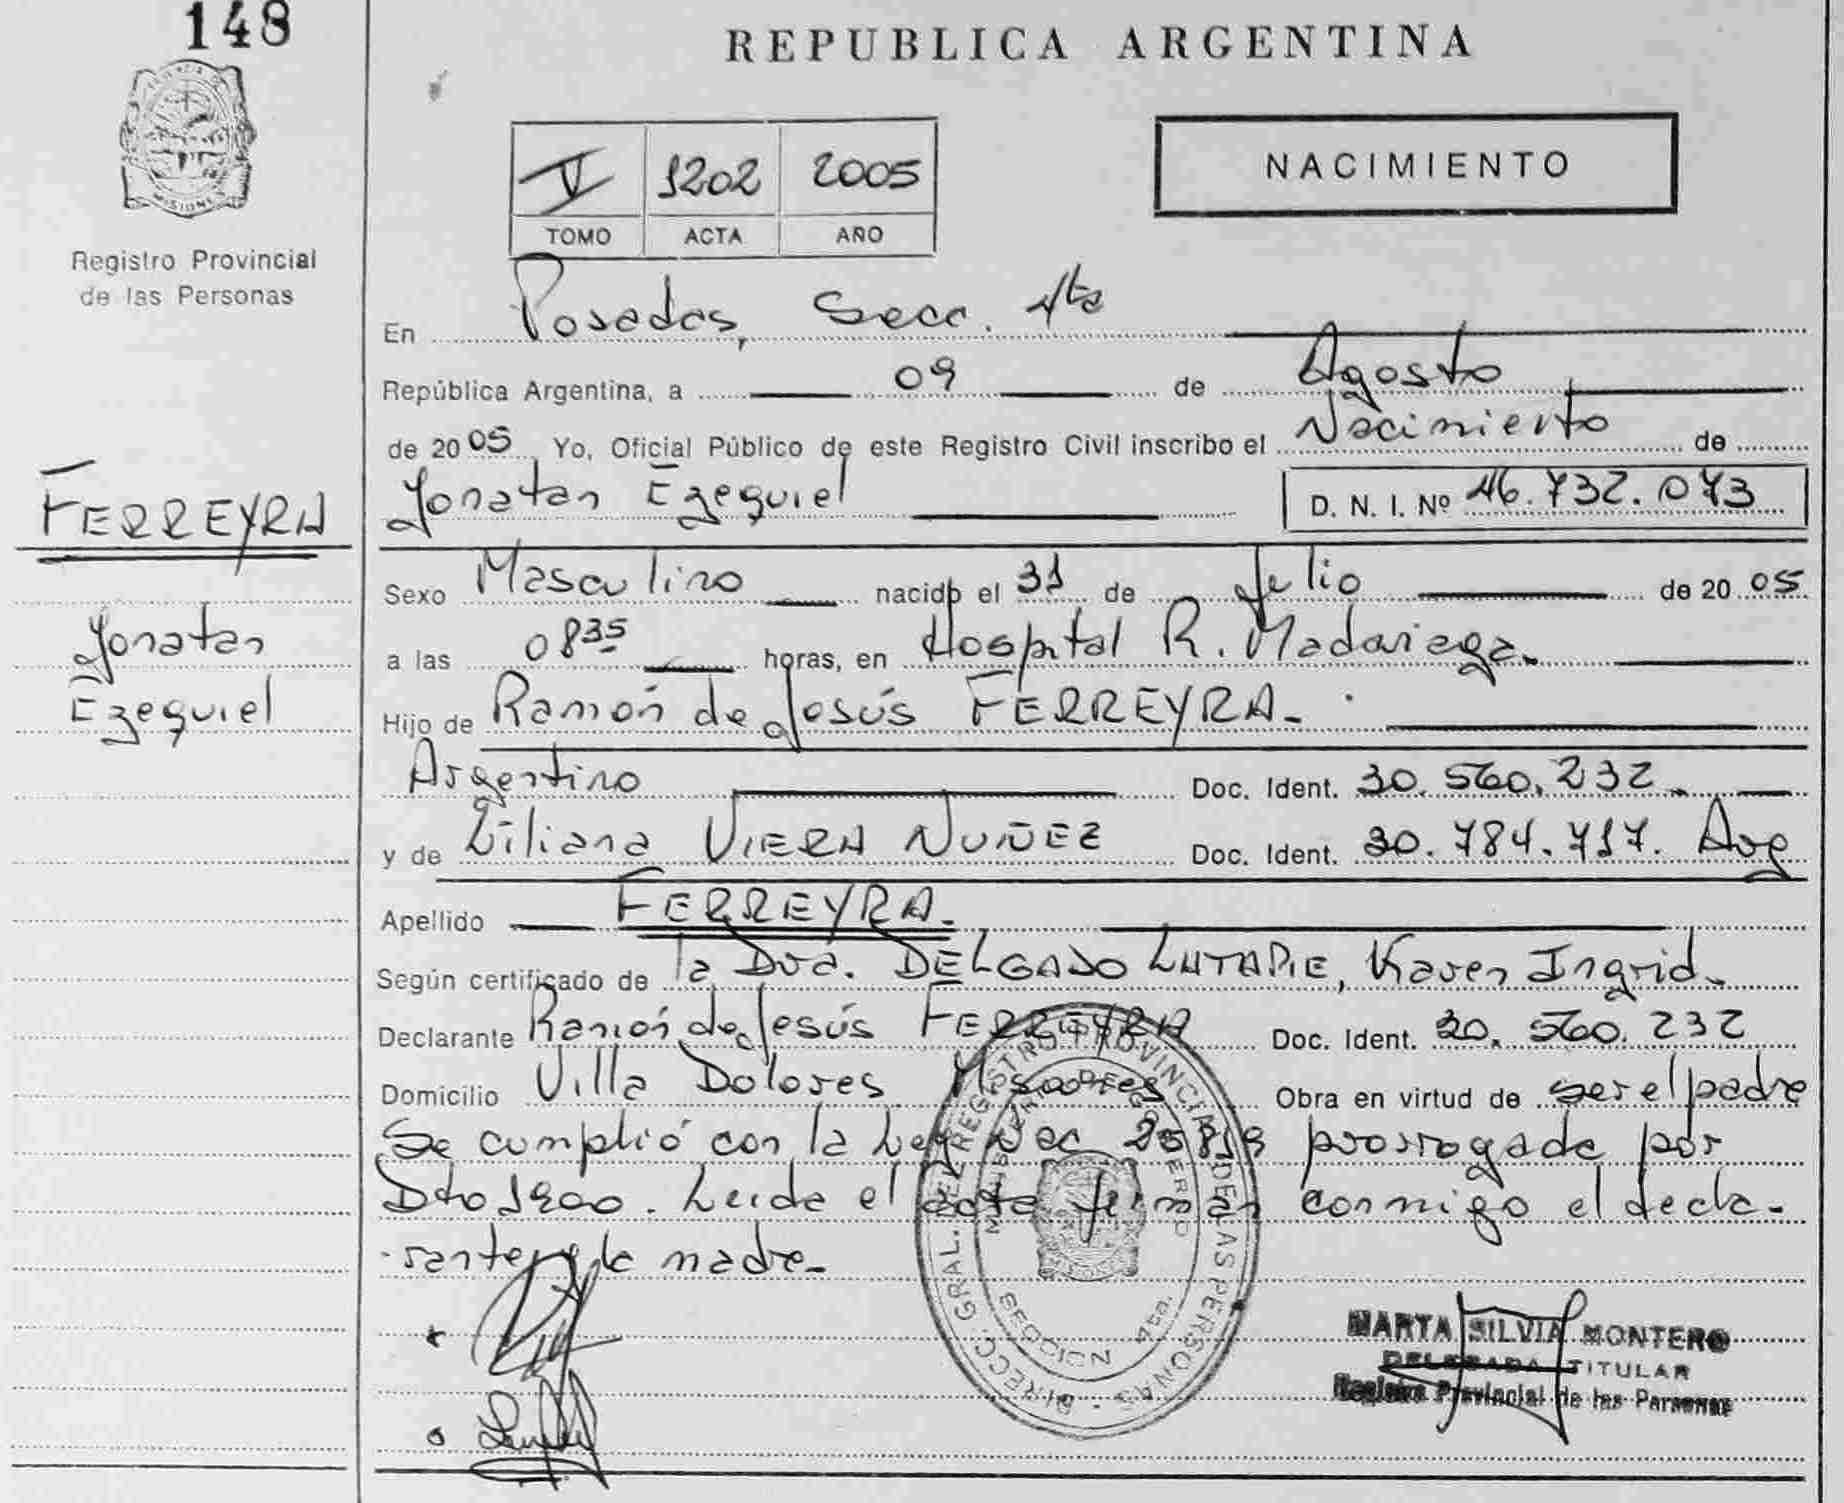 148
REPUBLICA ARGENTINA
MISIONES
Registro Provincial
de las Personas
V 1202 2005
TOMO ACTA AÑO
NACIMIENTO
En Posadas, Secc. 4ta
República Argentina, a 09 de Agosto
de 2005 Yo, Oficial Público de este Registro Civil inscribo el Nacimiento de
Yonatan Ezequiel D. N. I. Nº 46.732.073
FERREYRA
Yonatan
Ezequiel
Sexo Masculino nacido el 31 de Julio de 2005
a las 0835 horas, en Hospital R. Madariaga.
Hijo de Ramón de Jesús FERREYRA.
Argentino Doc. Ident. 30.560.232
y de Liliana VIERA NUÑEZ Doc. Ident. 30.784.717. Arg
Apellido FERREYRA.
Según certificado de la Dra. DELGADO LATAPIE, Karen Ingrid.
Declarante Ramón de Jesús FERREYRA Doc. Ident. 30.560.232
Domicilio Villa Dolores Misiones Obra en virtud de ser el padre
Se cumplió con la Ley Nac 25819 prorrogada por
Dto. Leida el acta firman conmigo el decla-
rante y la madre.
DIRECC. GRAL. DEL REGISTRO PROVINCIAL DE LAS PERSONAS
MINISTERIO DE GOBIERNO
SECCION 4ta.
MARTA SILVIA MONTERO
DELEGADA TITULAR
Registro Provincial de las Personas